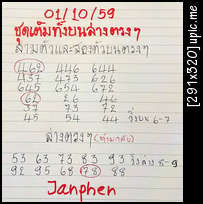 01/10/59
ชุดเต็มทั้งบนล่างตรงๆ
สามตัวและสองตัวบนตรงๆ
462 446 644
437 473 626
645 654 672
62 26 46
37 73 72
45 54 44 วิ่งบน 6-7
ล่างตรงๆ
53 63 73 83 93 วิ่งล่าง 8-9
92 95 68 78 88
Janphen
[291x320]upic.me